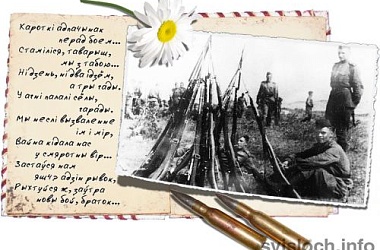 Кароткі адпачынак
перад боем...
Стаміліся, таварыш,
мы з табою...
Ні дзень, ні два ідзём,
а тры гады.
У агні палалі сёлы,
гарады.
Мы неслі вызваленне
ім і мір,
Вайна кідала нас
у смяротны вір...
Застаўся нам
яшчэ адзін рывок,
Рыхтуйся ж, заўтра
новы бой, браток...
svisloch.info